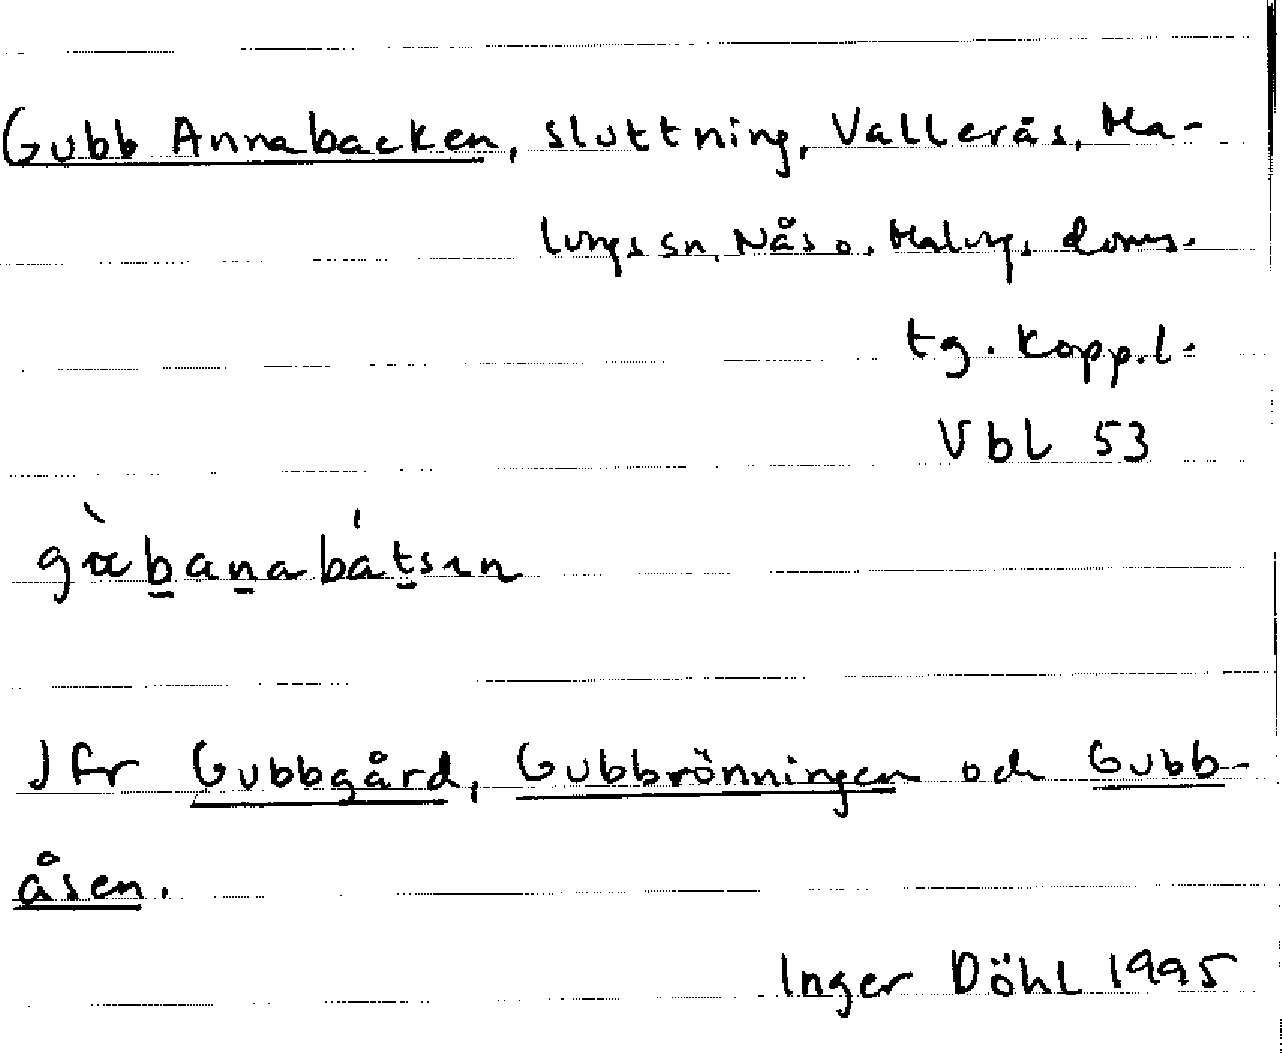 Gubb Annabacken, sluttning, Vallerås, Ma-
lungs sn, Nås o. Malungs doms-
tg. Kopp.l.
Vbl 53
Jfr Gubbgård, Gubbrönningen och Gubb-
åsen.
Inger Döhl 1995